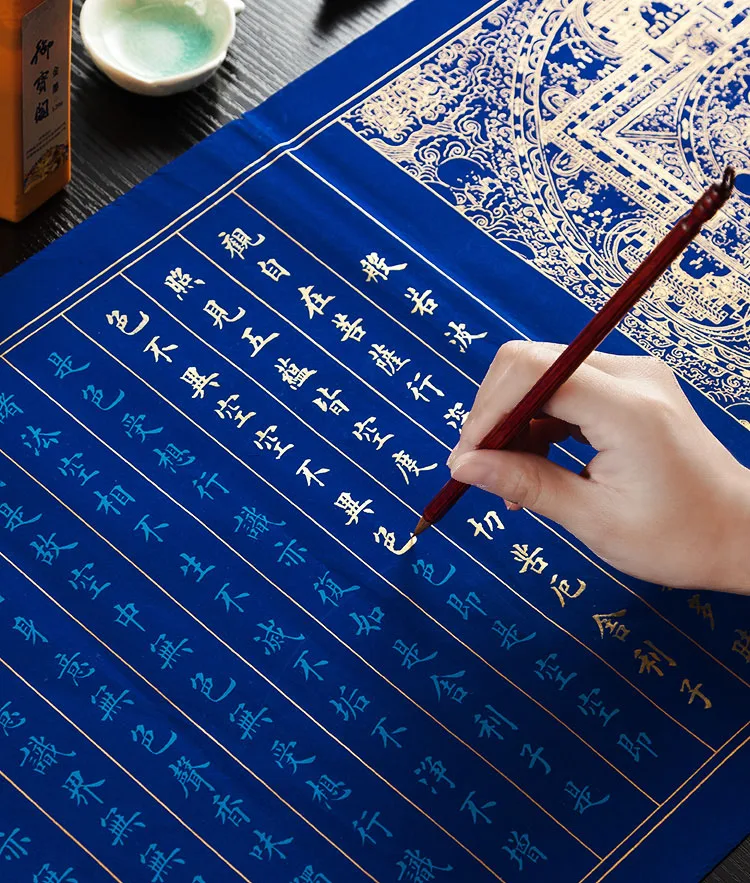 御寶閣
金墨
般若波
觀自在菩薩行深多時
照見五蘊皆空度切苦厄舍利子
色不異空空不異色色即是空空即
是色受想行識亦復如是舍利子是
諸法空相不生不滅不垢不淨不增
是故空中無色無受想行識
身意無色聲香味觸
意識界無無
亦無